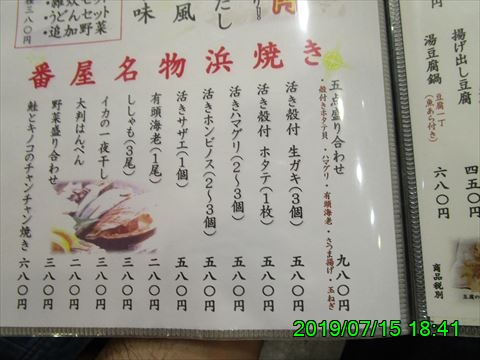 揚げ出し豆腐 四五〇円
湯豆腐鍋 豆腐一丁(魚あら付き) 六八〇円
商品税別
だし
風
味
セット
うどんセット
追加野菜
三八〇円
番屋名物浜焼き
五点盛り合わせ 九八〇円
・殻付きホタテ貝・ハマグリ・有頭海老・さつま揚げ・玉ねぎ
活き殻付 生ガキ(3個) 五八〇円
活き殻付 ホタテ(1枚) 五八〇円
活きハマグリ(2〜3個) 五八〇円
活きホンビノス(2〜3個) 五八〇円
活きサザエ(1個) 五八〇円
有頭海老(1尾) 二八〇円
ししゃも(3尾) 三八〇円
イカの一夜干し 二八〇円
大判はんぺん 三八〇円
野菜盛り合わせ 三八〇円
鮭とキノコのチャンチャン焼き 六八〇円
2019/07/15 18:41